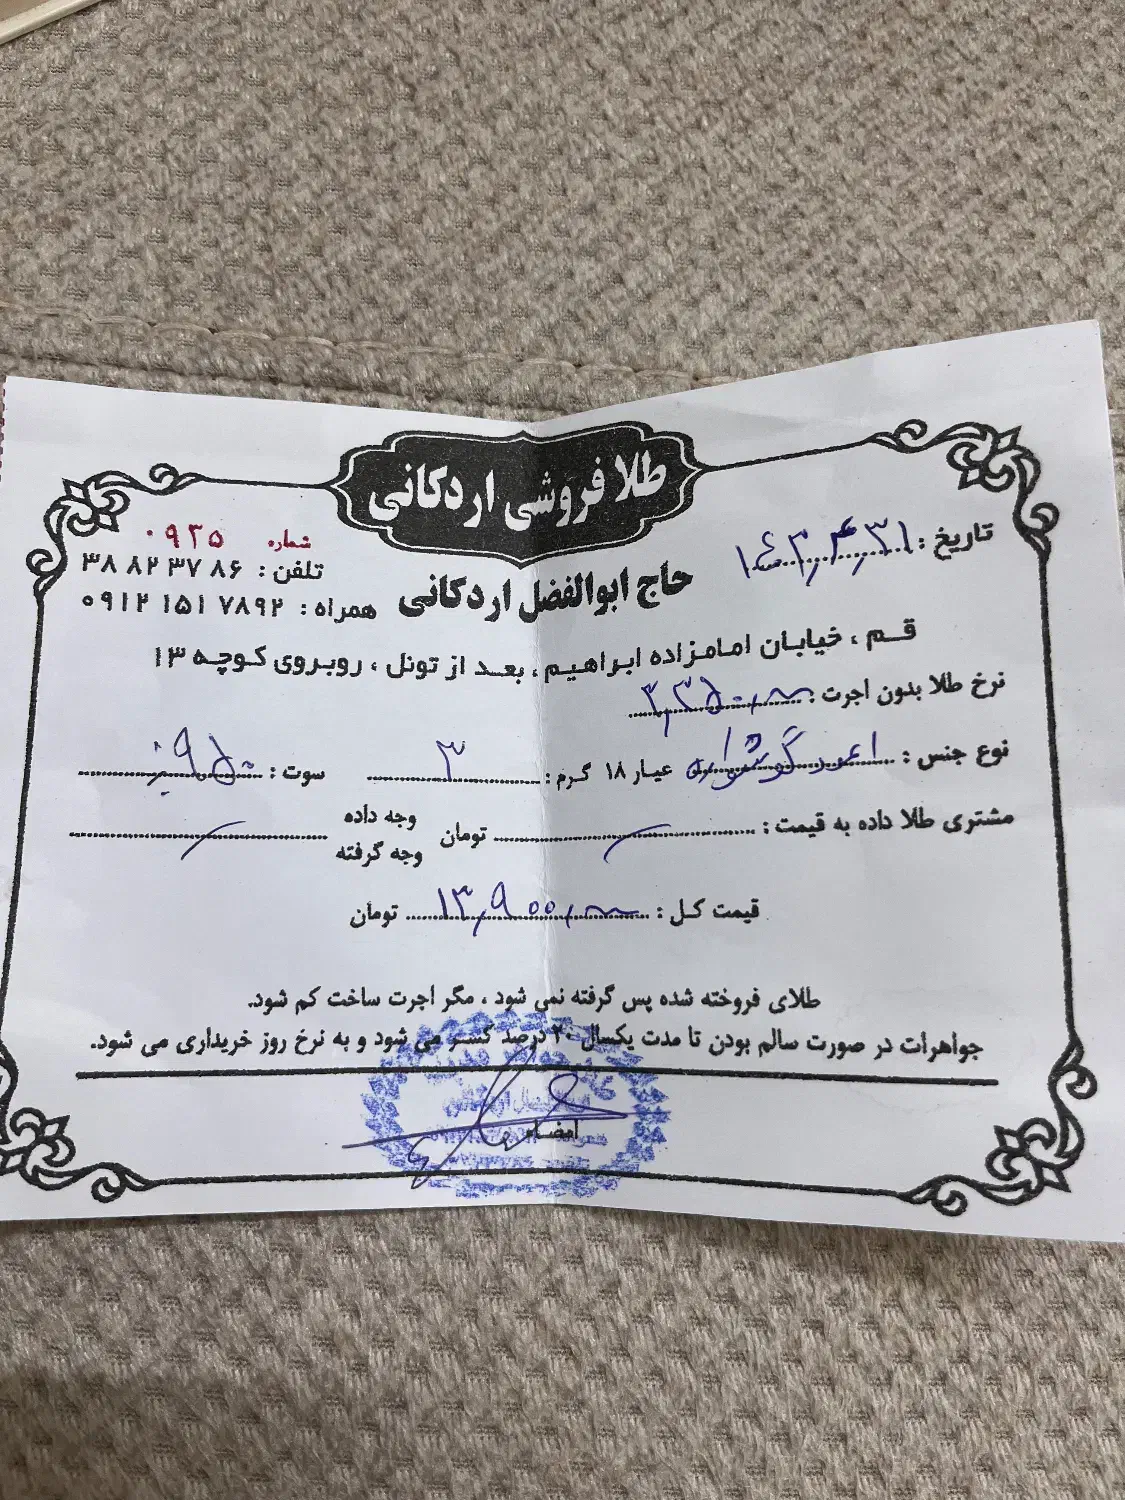 طلا فروشی اردکانی
تاریخ :
شماره ۰۹۲۵
تلفن : ۳۸ ۸۲ ۳۷ ۸۶
حاج ابوالفضل اردکانی
همراه : ۰۹۱۲ ۱۵۱ ۷۸۹۲
قم ، خیابان امامزاده ابراهیم ، بعد از تونل ، روبروی کوچه ۱۳
نرخ طلا بدون اجرت :
نوع جنس : عیار ۱۸ گرم : ۳ سوت : ۹۵۰
مشتری طلا داده به قیمت : تومان وجه داده
وجه گرفته
قیمت کل : ۱۳,۹۰۰,۰۰۰ تومان
طلای فروخته شده پس گرفته نمی شود ، مگر اجرت ساخت کم شود.
جواهرات در صورت سالم بودن تا مدت یکسال ۲۰ درصد کسر می شود و به نرخ روز خریداری می شود.
امضاء